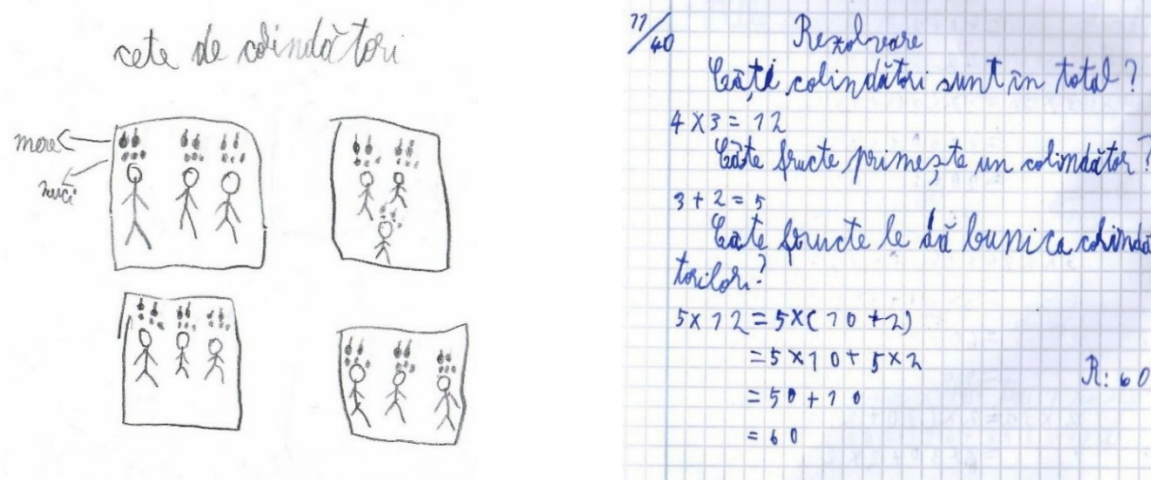 cete de colindători
mere
nuci
11/40
Rezolvare
Câți colindători sunt în total?
4 x 3 = 12
Câte fructe primește un colindător?
3 + 2 = 5
Câte fructe le dă bunica colindă
torilor?
5 x 12 = 5 x ( 10 + 2)
= 5 x 10 + 5 x 2
= 50 + 10
= 60
R: 60